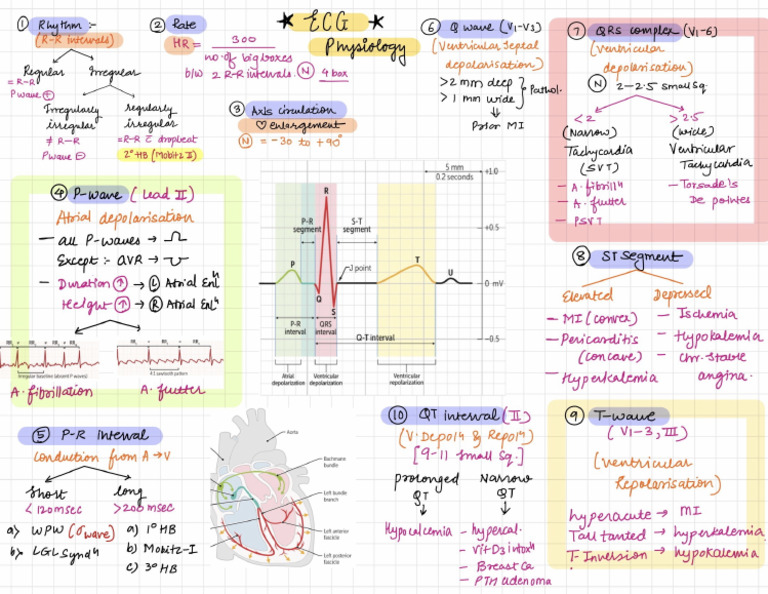 ★ ECG ★
Physiology
① Rhythm :-
(R-R intervals)
Regular
= R-R
P wave ⊕
Irregular
Irregularly
irregular
≠ R-R
P wave ⊖
regularly
irregular
= R-R c̄ dropbeat
2° HB (Mobitz II)
② Rate
HR = 300
no. of big boxes
b/w 2 R-R intervals.
Ⓝ 4 box
③ Axis circulation
♡ enlargement
Ⓝ = -30 to +90°
④ P-wave (Lead II)
Atrial depolarisation
— all P-waves →
Except :- aVR →
- Duration ↑ → Ⓛ Atrial Enlⁿ
Height ↑ → Ⓡ Atrial Enlⁿ
RR₁ RR₂ RR₃ RR₄
Irregular baseline (absent P waves)
A. fibrillation
4:1 sawtooth pattern
A. flutter
⑤ P-R interval
Conduction from A → V
Short
< 120 msec
a) WPW (σ wave)
b) LGL Syndⁿ
long
> 200 msec
a) 1° HB
b) Mobitz-I
c) 3° HB
⑥ Q wave (V1-V3)
(Ventricular Septal
depolarisation)
> 2 mm deep
> 1 mm wide
} Pathol.
Prior MI
⑦ QRS complex (V1-6)
(ventricular
depolarisation)
Ⓝ 2-2.5 small sq.
< 2
(Narrow)
Tachycardia
(SVT)
- A. fibrillⁿ
- A. flutter
- PSVT
> 2.5
(wide)
Ventricular
Tachycardia
- Torsade's
De pointes
5 mm
0.2 seconds
+1.0
+0.5
0 mV
-0.5
R
P-R
segment
S-T
segment
P
J point
T
U
Q
S
P-R
interval
QRS
interval
Q-T interval
Atrial
depolarization
Ventricular
depolarization
Ventricular
repolarization
⑧ ST Segment
Elevated
- MI (convex)
- Pericarditis
(concave)
- Hyperkalemia
Depressed
- Ischemia
- Hypokalemia
- Chr. stable
angina.
⑨ T-wave
(V1-3, III)
(ventricular
Repolarisation)
hyperacute → MI
Tall tanted → hyperkalemia
T-Inversion → hypokalemia
⑩ QT interval (II)
(V. Depolⁿ & Repolⁿ)
[9-11 small sq.]
prolonged
QT
Hypocalcemia
Narrow
QT
- hypercal.
- Vit D3 intoxⁿ
- Breast Ca
- PTH adenoma
Aorta
Bachmann
bundle
Left bundle
branch
Left anterior
fascicle
Left posterior
fascicle